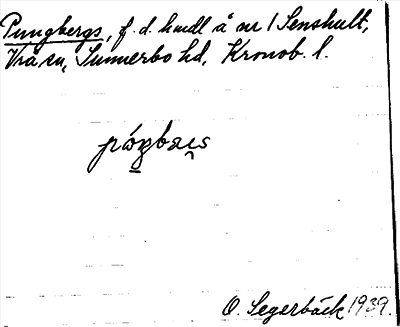 Pungbergs, f.d. hmdl å nr 1 Senshult,
Vrå sn, Sunnerbo hd, Kronob. l.
O. Segerbäck 1939.